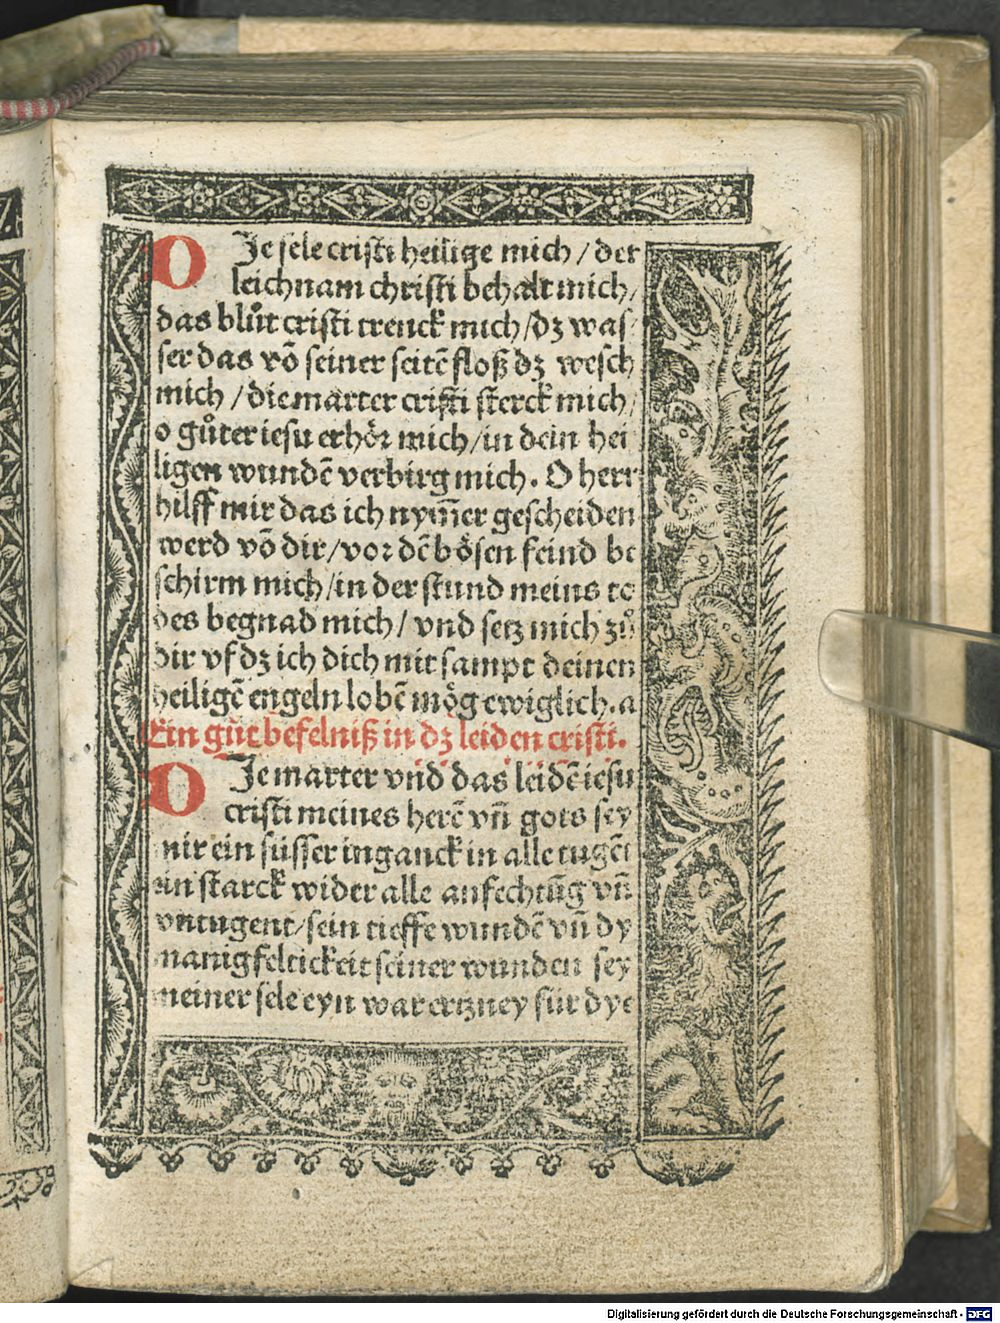 OJe sele cristi heilige mich / der
leichnam christi behalt mich /
das blůt cristi trenck mich / dz was⸗
ser das võ seiner seitẽ floß dz wesch
mich / die marter cristi sterck mich /
o gůter iesu erhör mich / in dein hei
ligen wundẽ verbirg mich. O herr
hilff mir das ich nym̃er gescheiden
werd võ dir / vor dẽ bösen feind be
schirm mich / in der stund meins to
des begnad mich / vnd setz mich zů
dir vf dz ich dich mit sampt deinen
heiligẽ engeln lobẽ mög ewiglich. a
Ein gůt befelniß in dz leiden cristi.
OJe marter vnd das leidẽ iesu
cristi meines herẽ vñ gots sey
mir ein süsser inganck in alle tugẽt
ein starck wider alle anfechtũg vñ
vntugent / sein tieffe wundẽ vñ dy
manigfeltickeit seiner wunden sey
meiner sele eyn war ertzney für dye
Digitalisierung gefördert durch die Deutsche Forschungsgemeinschaft - DFG